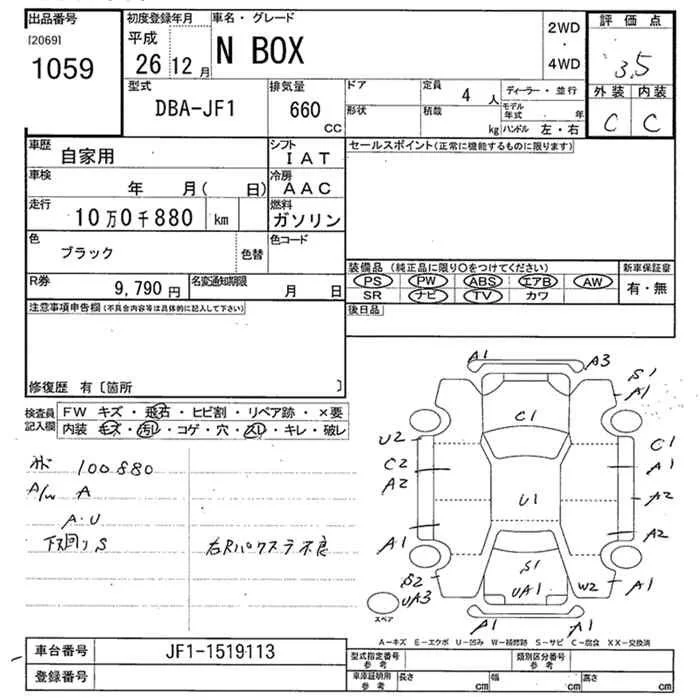 出品番号
[2069]
1059
初度登録年月
平成
26 12 月
車名・グレード
N BOX
2WD
・
4WD
評価点
3.5
外装 内装
C C
型式
DBA-JF1
排気量
660
CC
ドア
形状
定員
4 人
積載
kg
ディーラー・並行
モデル年式 年
ハンドル 左・右
車歴
自家用
シフト
IAT
車検
年 月( 日)
冷房
AAC
走行
10万0千880 km
燃料
ガソリン
色
ブラック
色替
色コード
R券
9,790円
名変通知期限
月 日
セールスポイント(正常に機能するものに限ります)
装備品 (純正品に限り○をつけてください)
PS PW ABS エアB AW
SR ナビ TV カワ
新車保証書
有・無
後日品
注意事項申告欄(不具合内容等は具体的に記入して下さい)
修復歴 有〔箇所 〕
検査員記入欄
FW キズ・飛石・ヒビ割・リペア跡・×要
内装 キズ・汚レ・コゲ・穴・スレ・キレ・破レ
100880
A/W A
A・U
下回り S
右Rパワスラ不良
A1
A3
S1
A1
C1
U2
C2
A2
C1
A1
A2
U1
A1
A2
S2
UA3
S1
UA1
W2
A1
A1
A1
スペア
A-キズ E-エクボ U-凹み W-補修跡 S-サビ C-腐食 XX-交換済
車台番号
JF1-1519113
登録番号
型式指定番号
参考
類別区分番号
参考
車庫証明用
参考
長さ cm
幅 cm
高さ cm